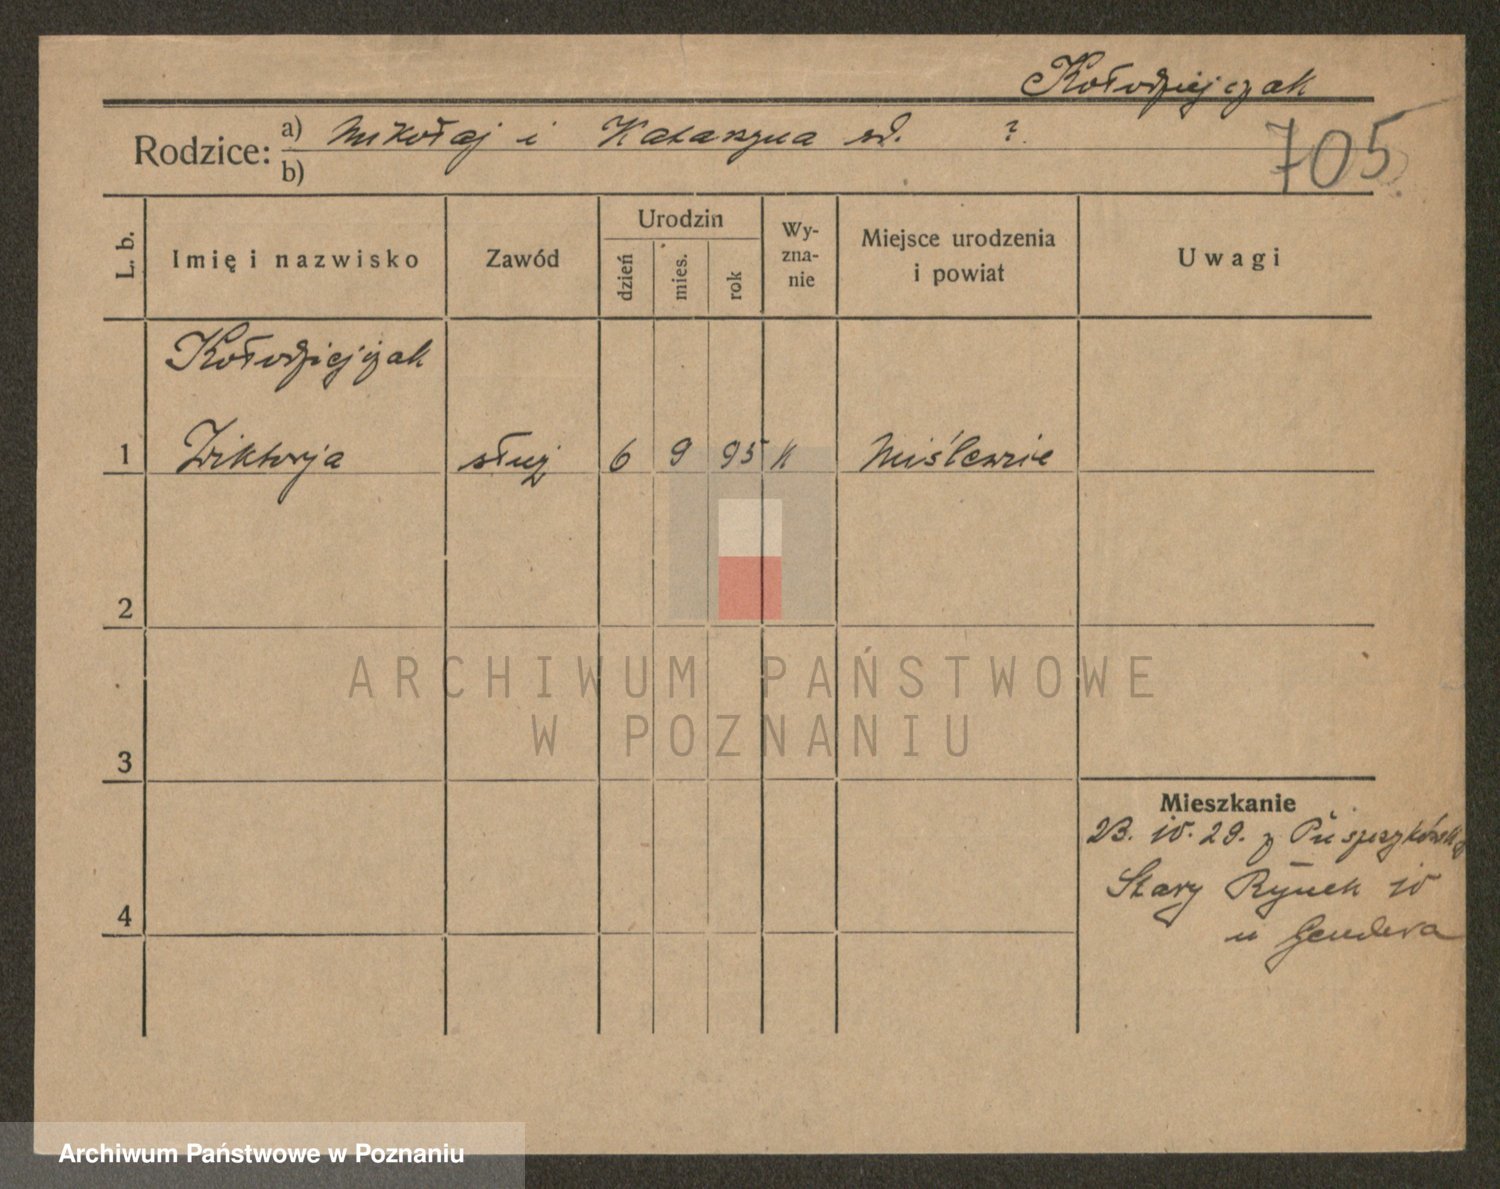 Kołodziejczak
705
Rodzice: a) Mikołaj i Katarzyna zd. ?
b)
L. b. Imię i nazwisko Zawód Urodzin dzień mies. rok Wyznanie Miejsce urodzenia i powiat Uwagi
Kołodziejczak
1 Wiktorja służ 6 9 95 k
2
ARCHIWUM PAŃSTWOWE
W POZNANIU
3
Mieszkanie
23. 10. 29. z
Stary Rynek 10
4
u Gendera
Archiwum Państwowe w Poznaniu